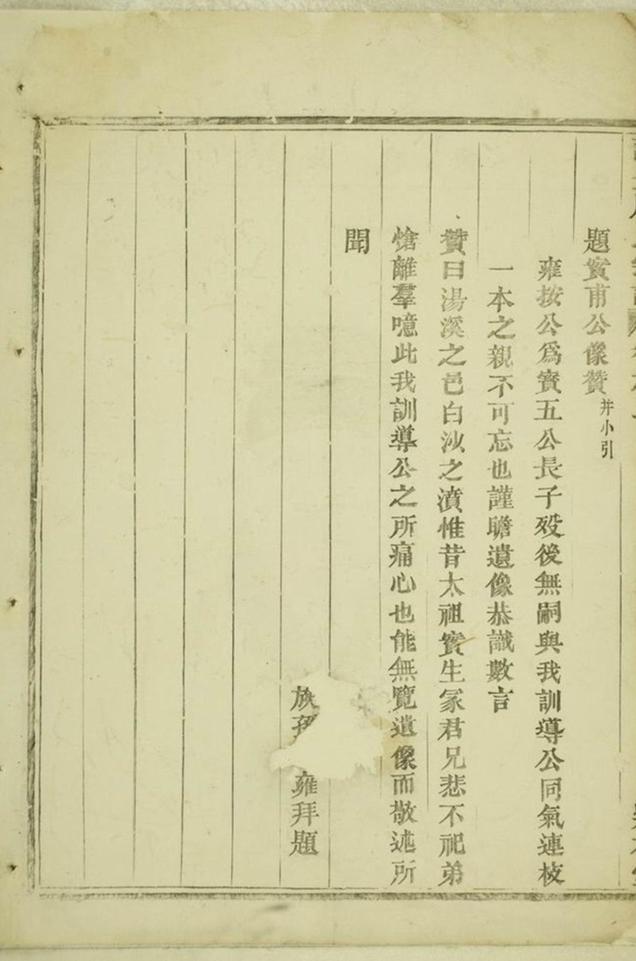 題賓甫公像贊并小引
雍按公爲賓五公長子歿後無嗣與我訓導公同氣連枝
一本之親不可忘也謹瞻遺像恭識數言
贊曰湯溪之邑白沙之濆惟昔太祖實生冢君兄悲不祀弟
愴離羣噫此我訓導公之所痛心也能無覽遺像而敬述所
聞
族孫雍拜題